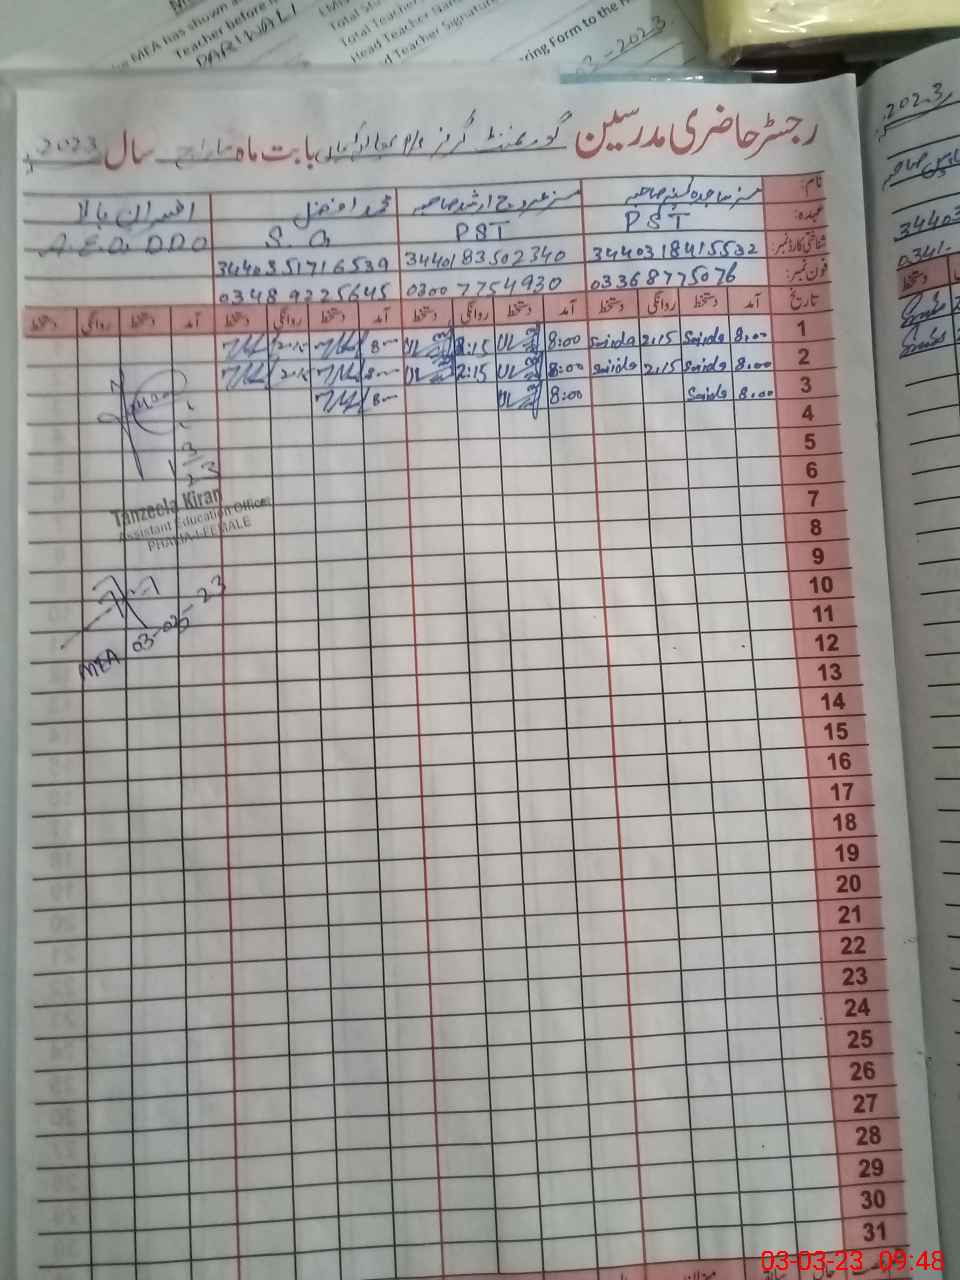 MEA has shown
Teacher before
PARIWALI
Total
Head Teacher Nam
Head Teacher Signature
ring Form to the
03-2023
رجسٹر حاضری مدرسین گورنمنٹ گرلز بابت ماہ مارچ سال 2023
نام: مسز ساجدہ صاحبہ مسز عروج ارشد صاحبہ محمد افضل افسران بالا
عہدہ: PST PST S.G A.E.O. DDO
شناختی کارڈ نمبر: 3440318415532 3440183502340 3440351716539
فون نمبر: 03368775076 03007754930 03489225645
تاریخ آمد دستخط روانگی دستخط آمد دستخط روانگی دستخط آمد دستخط روانگی دستخط آمد دستخط روانگی دستخط
1 8:00 Sajida 2:15 Sajida 8:00 2:15 8:00 2:15
2 8:00 Sajida 2:15 Sajida 8:00 2:15 8:00 2:15
3 8:00 Sajida 8:00 8:00
4
5
6
7
8
9
10
11
12
13
14
15
16
17
18
19
20
21
22
23
24
25
26
27
28
29
30
31
1/3/23
Tanzeela Kiran
Assistant Education Officer
PHALIA-I FEMALE
MEA 03-03-23
2023
34403
0341-
دستخط
03-03-23 09:48